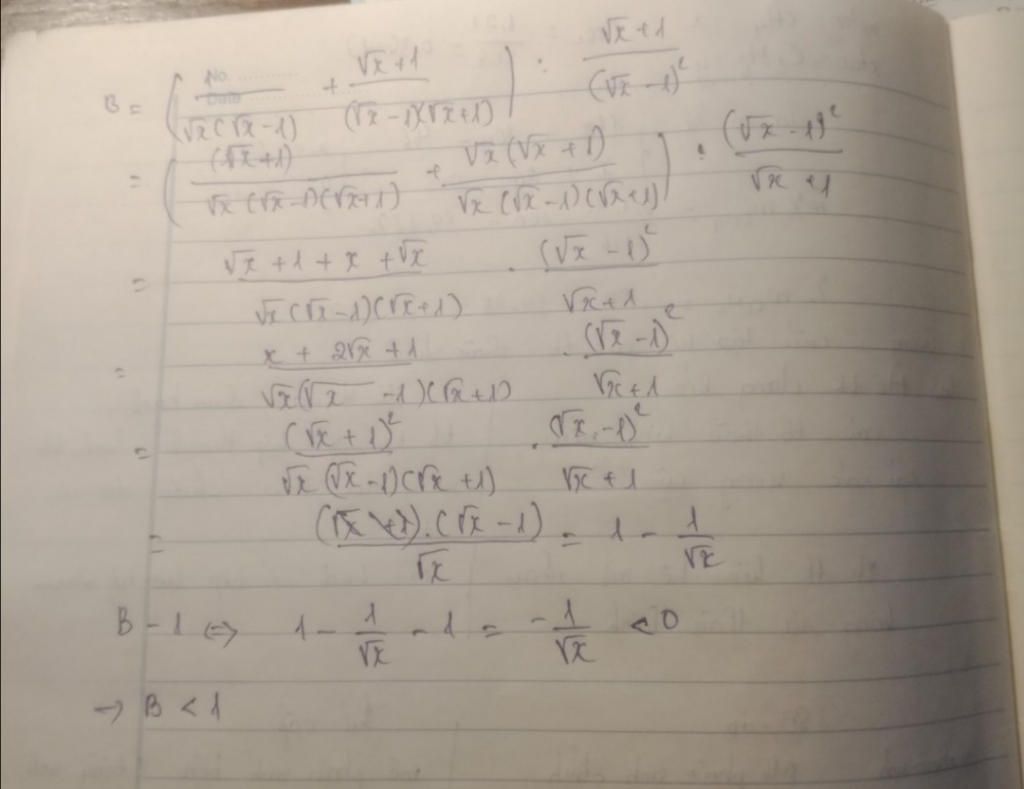 B = ( No. Date / √x(√x - 1) + √x + 1 / (√x - 1)(√x + 1) ) : √x + 1 / (√x - 1)²
= ( (√x + 1) / √x(√x - 1)(√x + 1) + √x(√x + 1) / √x(√x - 1)(√x + 1) ) . (√x - 1)² / √x + 1
= √x + 1 + x + √x / √x(√x - 1)(√x + 1) . (√x - 1)² / √x + 1
= x + 2√x + 1 / √x(√x - 1)(√x + 1) . (√x - 1)² / √x + 1
= (√x + 1)² / √x(√x - 1)(√x + 1) . (√x - 1)² / √x + 1
= (√x + 1).(√x - 1) / √x = 1 - 1/√x
B - 1 ⇔ 1 - 1/√x - 1 = -1/√x < 0
→ B < 1